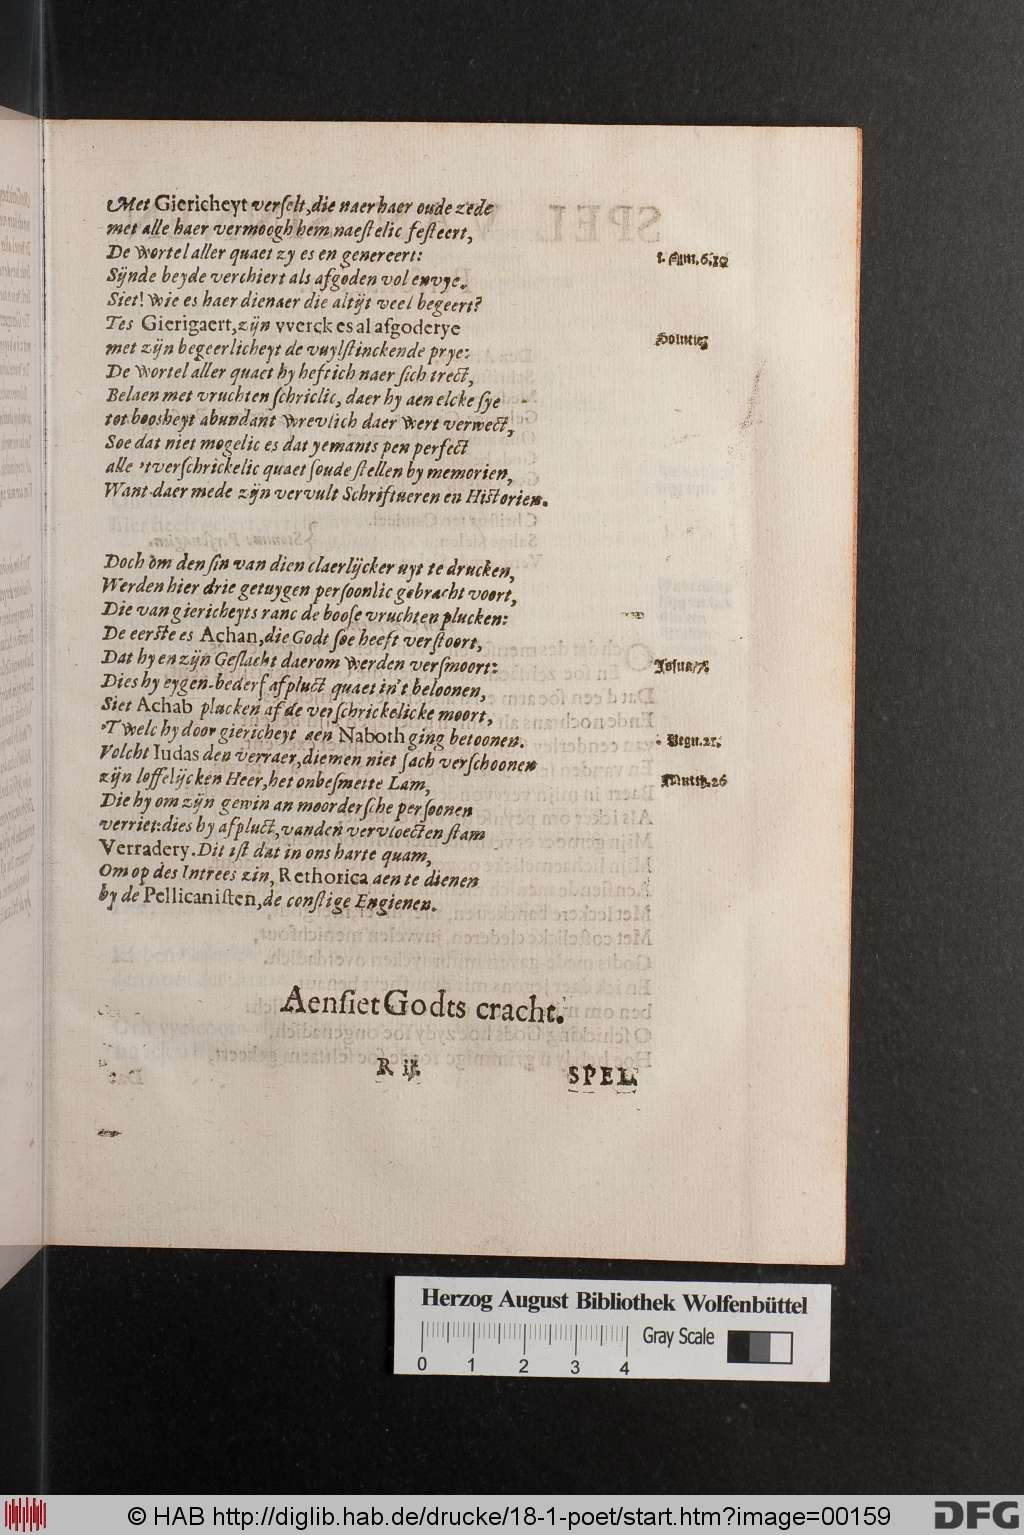 Met Giericheyt verſelt, die naer haer oude zede
met alle haer vermoogh hem naeſtelic feſteert,
De wortel aller quaet zy es en genereert:
Sijnde beyde verchiert als afgoden vol envye.
Siet! wie es haer dienaer die altijt veel begeert?
Tes Gierigaert, zijn vverck es al afgoderye
met zijn begeerlicheyt de vuylſtinckende prye:
De wortel aller quaet hy heftich naer ſich trect,
Belaen met vruchten ſchriclic, daer hy aen elcke ſye
tot boosheyt abundant wrevlich daer wert verwect,
Soe dat niet mogelic es dat yemants pen perfect
alle 'tverſchrickelic quaet ſoude ſtellen by memorien,
Want daer mede zijn vervult Schriftueren en Hiſtorien.
Doch om den ſin van dien claerlijcker uyt te drucken,
Werden hier drie getuygen perſoonlic gebracht voort,
Die van giericheyts ranc de booſe vruchten plucken:
De eerſte es Achan, die Godt ſoe heeft verſtoort,
Dat hy en zijn Geſlacht daerom werden verſmoort:
Dies hy eygen-bederf afpluct quaet in't beloonen,
Siet Achab plucken af de verſchrickelicke moort,
'T welc hy door giericheyt aen Naboth ging betoonen.
Volcht Iudas den verraer, diemen niet ſach verſchoonen
zijn loffelijcken Heer, het onbeſmette Lam,
Die hy om zijn gewin an moorderſche perſoonen
verriet: dies hy afpluct, vanden vervloecten ſtam
Verradery. Dit iſt dat in ons harte quam,
Om op des Intrees zin, Rethorica aen te dienen
by de Pellicaniſten, de conſtige Engienen.
Aenſiet Godts cracht.
R ij.
SPEL
1. 6.10
Joſua/7.
Regu.21.
Matth.26
Herzog August Bibliothek Wolfenbüttel
Gray Scale
0 1 2 3 4
© HAB http://diglib.hab.de/drucke/18-1-poet/start.htm?image=00159
DFG